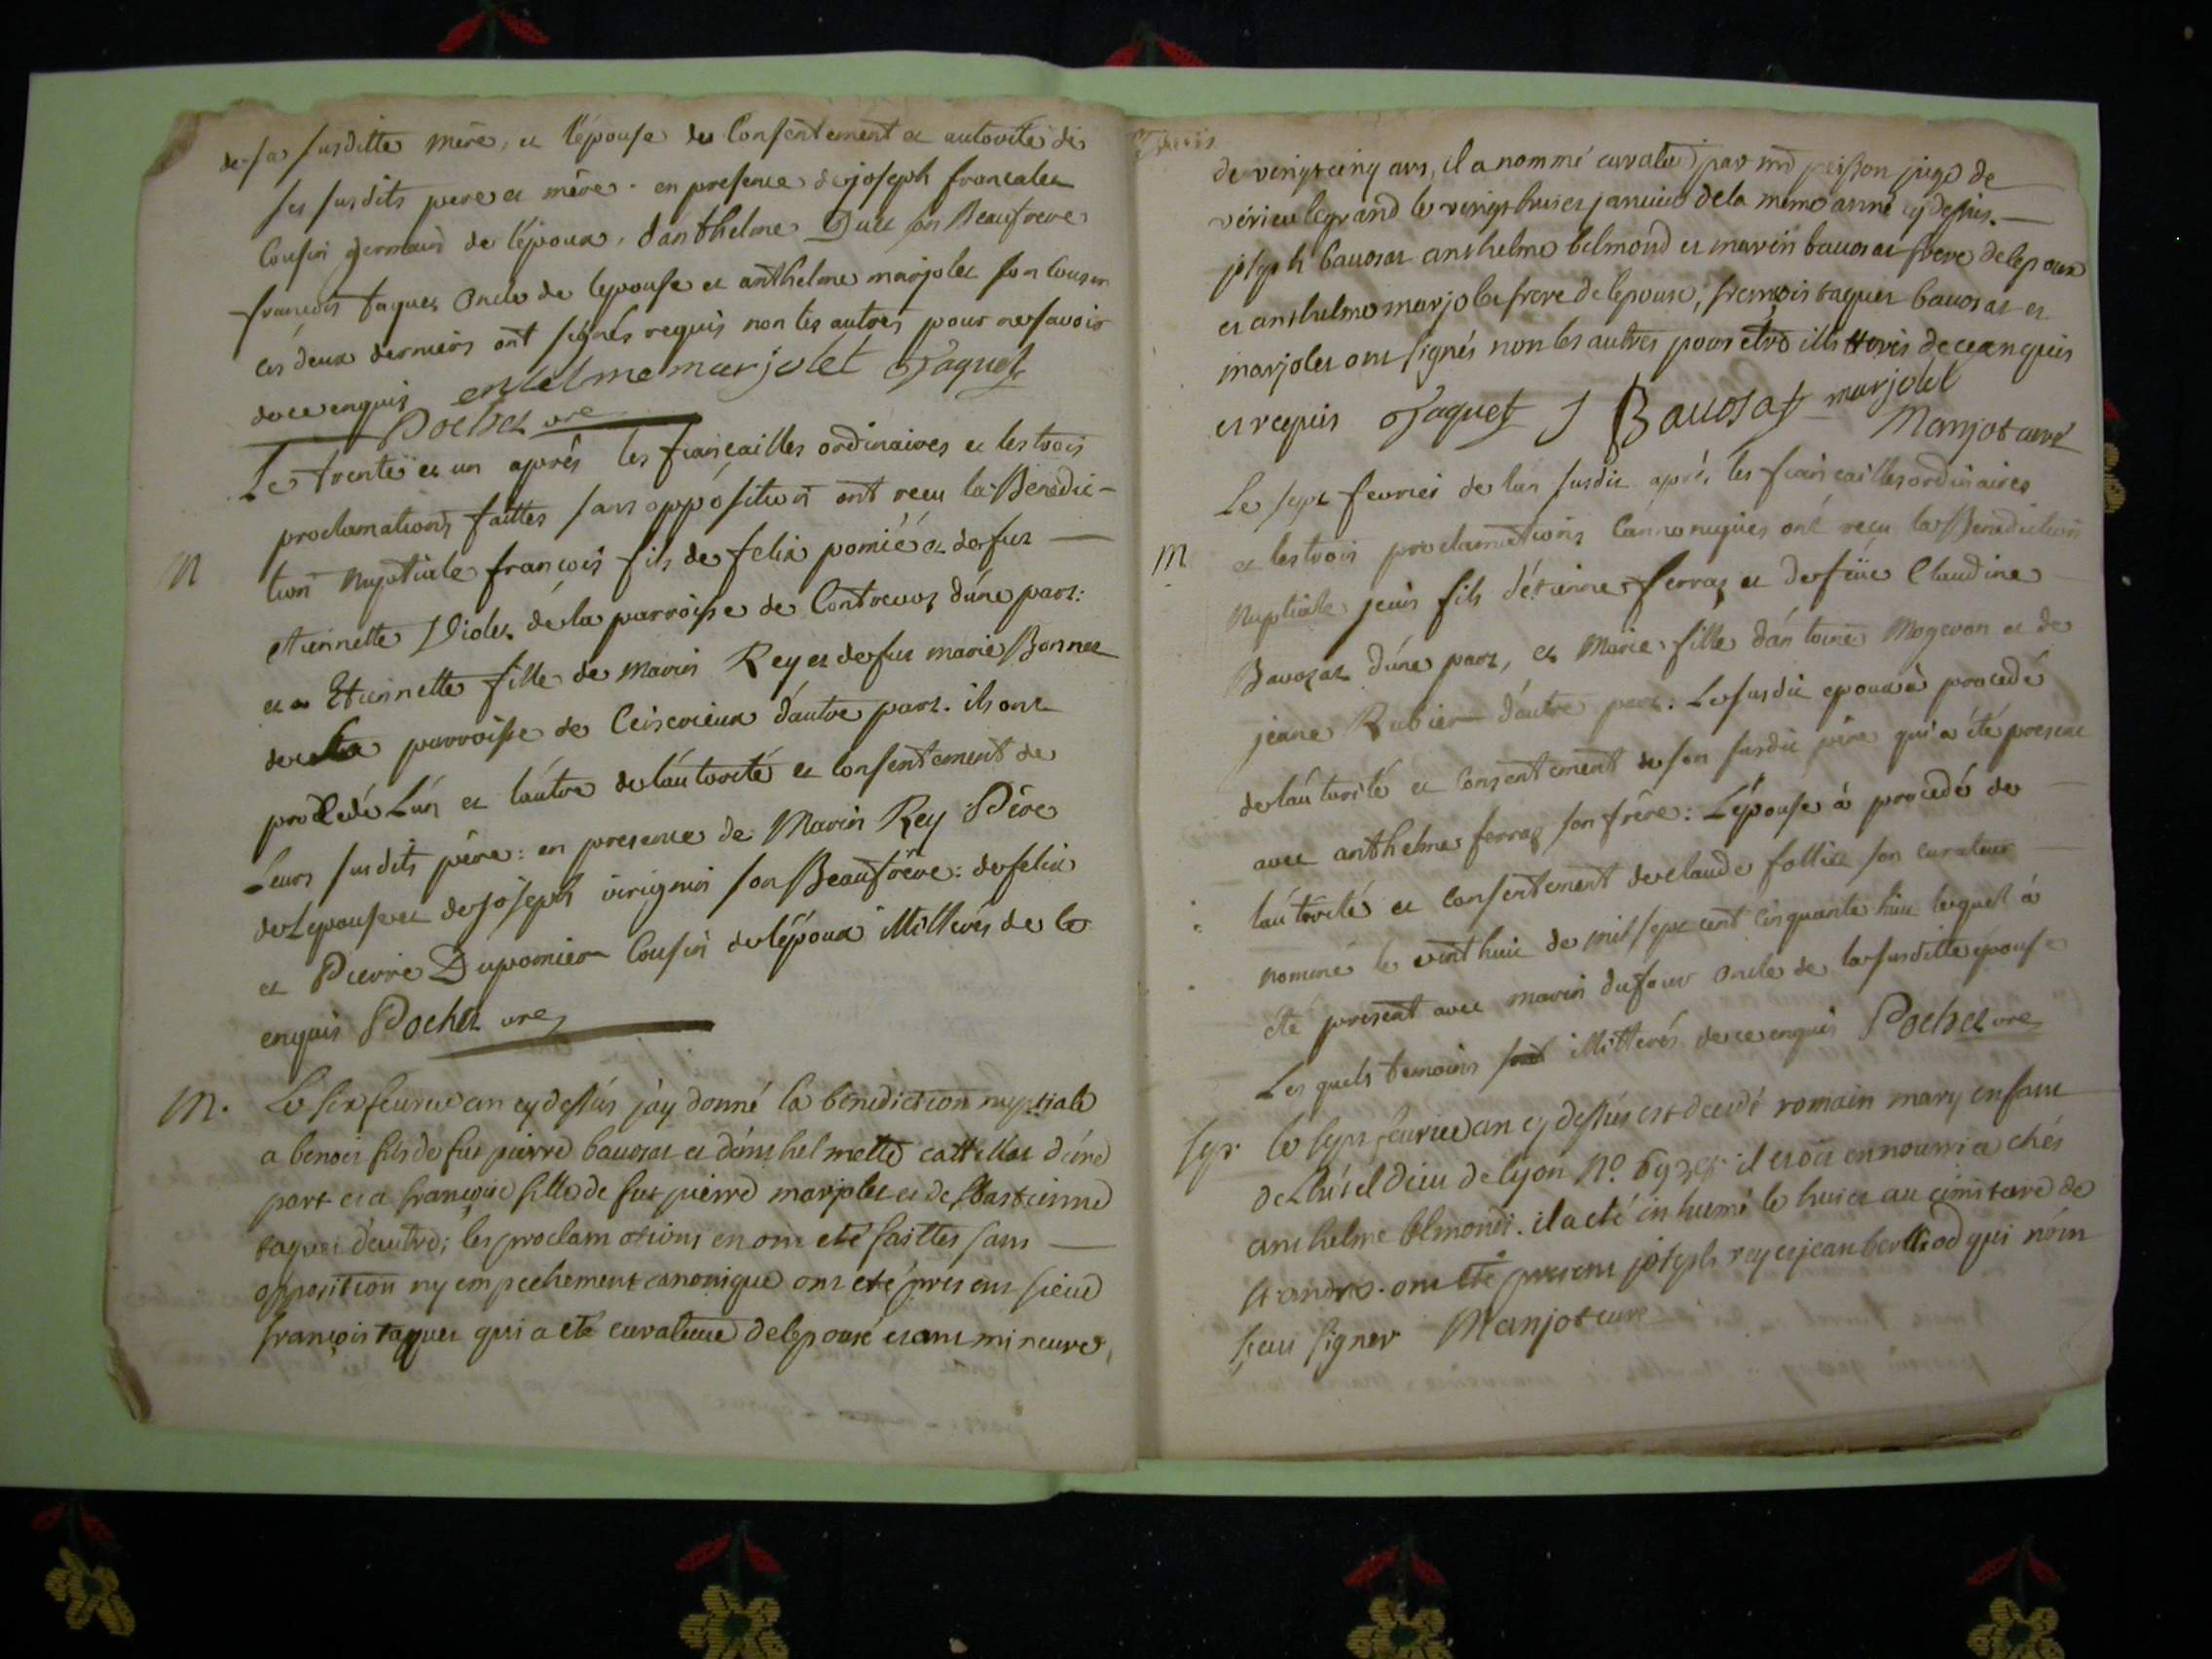 de sa susditte mere, et l'épouse du Consentement et autorite de
ses susdits pere et mère. en presence de joseph francalet
Cousin germain de l'époux, d'anthelme Duet son Beaufrere
françois taquet Oncle de lepouse et anthelme marjolet son Cousin
ces deux derniers ont signés requis non les autres pour ne savoir
de ce enquis entelme marjolet Taquet
Pochet vre
Le trente et un après les fiançailles ordinaires et les trois
proclamations faittes sans oppósition ont reçu la Benedic-
M tion Nuptiale françois fils de felix pomié et de fut
etiennette Violet de la parroisse de Contrevoz d'une part:
et a Etiennette fille de Marin Rey et de fut marie Bonnet
de la parroisse de Ceiserieux d'autre part. ils ont
procedé L'un et l'autre de l'autorité et consentement de
Leurs susdits père: en presence de Marin Rey Père
de Lepouse et de joseph virignin son Beaufrère: de felix
et Pierre Dupomier Cousin de l'époux illitterés de ce
enquis Pochet vre
M. Le six feurier an cy dessus j'ay donné la bénédiction nuptiale
a benoit fils de fut pierre bauosat et d'anthelmette cattillat d'une
part et a françoise fille de fut pierre marjolet et de sbastienne
taquet d'autre; les proclamations en ont eté faittes sans
opposition ny empechement canonique ont eté presens sieur
françois taquet qui a eté curateur de lepouse etant mineure
de vingt cinq ans, il a nommé curateur par mr peisson juge de
vérieu le grand le vingt huit janvier de la meme anné cy dessus.
joseph bauosat anthelme belmond et marin bauosat frere de lepoux
et anthelme marjolet frere de lepouse, françois taquet bauosat et
marjolet ont signés non les autres pour etre illitterés de ce enquis
et requis Taquet J Bauosat marjolet
Manjot curé
Le sept feurier de l'an susdit aprés les fiançailles ordinaires
M et les trois proclamations Cannoniques ont reçu la Benediction
Nuptiale jean fils d'étienne ferraz et de feüe Claudine
Bavozat d'une part, et Marie fille d'antoine Mogeron et de
jeane Rubier d'autre part: Le susdit epoux à procedé
de l'autorité et Consentement de son susdit père qui a été present
avec anthelme ferraz son frère: L'épouse à procedé de
l'autorité et consentement de claude folliet son curateur
nommé le vint huit de mil sept cent cinquante huit lequel à
été present avec marin dufour oncle de la susditte épouse
Les quels temoins sont illitterés de ce enquis Pochet vre
sep. le sept feurier an cy dessus est decedé romain mary enfant
de Lhôtel dieu de lyon No. il etoit en nourrice chés
anthelme belmond. il a eté inhumé le huit au cimitiere de
st andré. ont eté presens joseph rey et jean berthod qui n'ont
sçeu signer Manjot curé